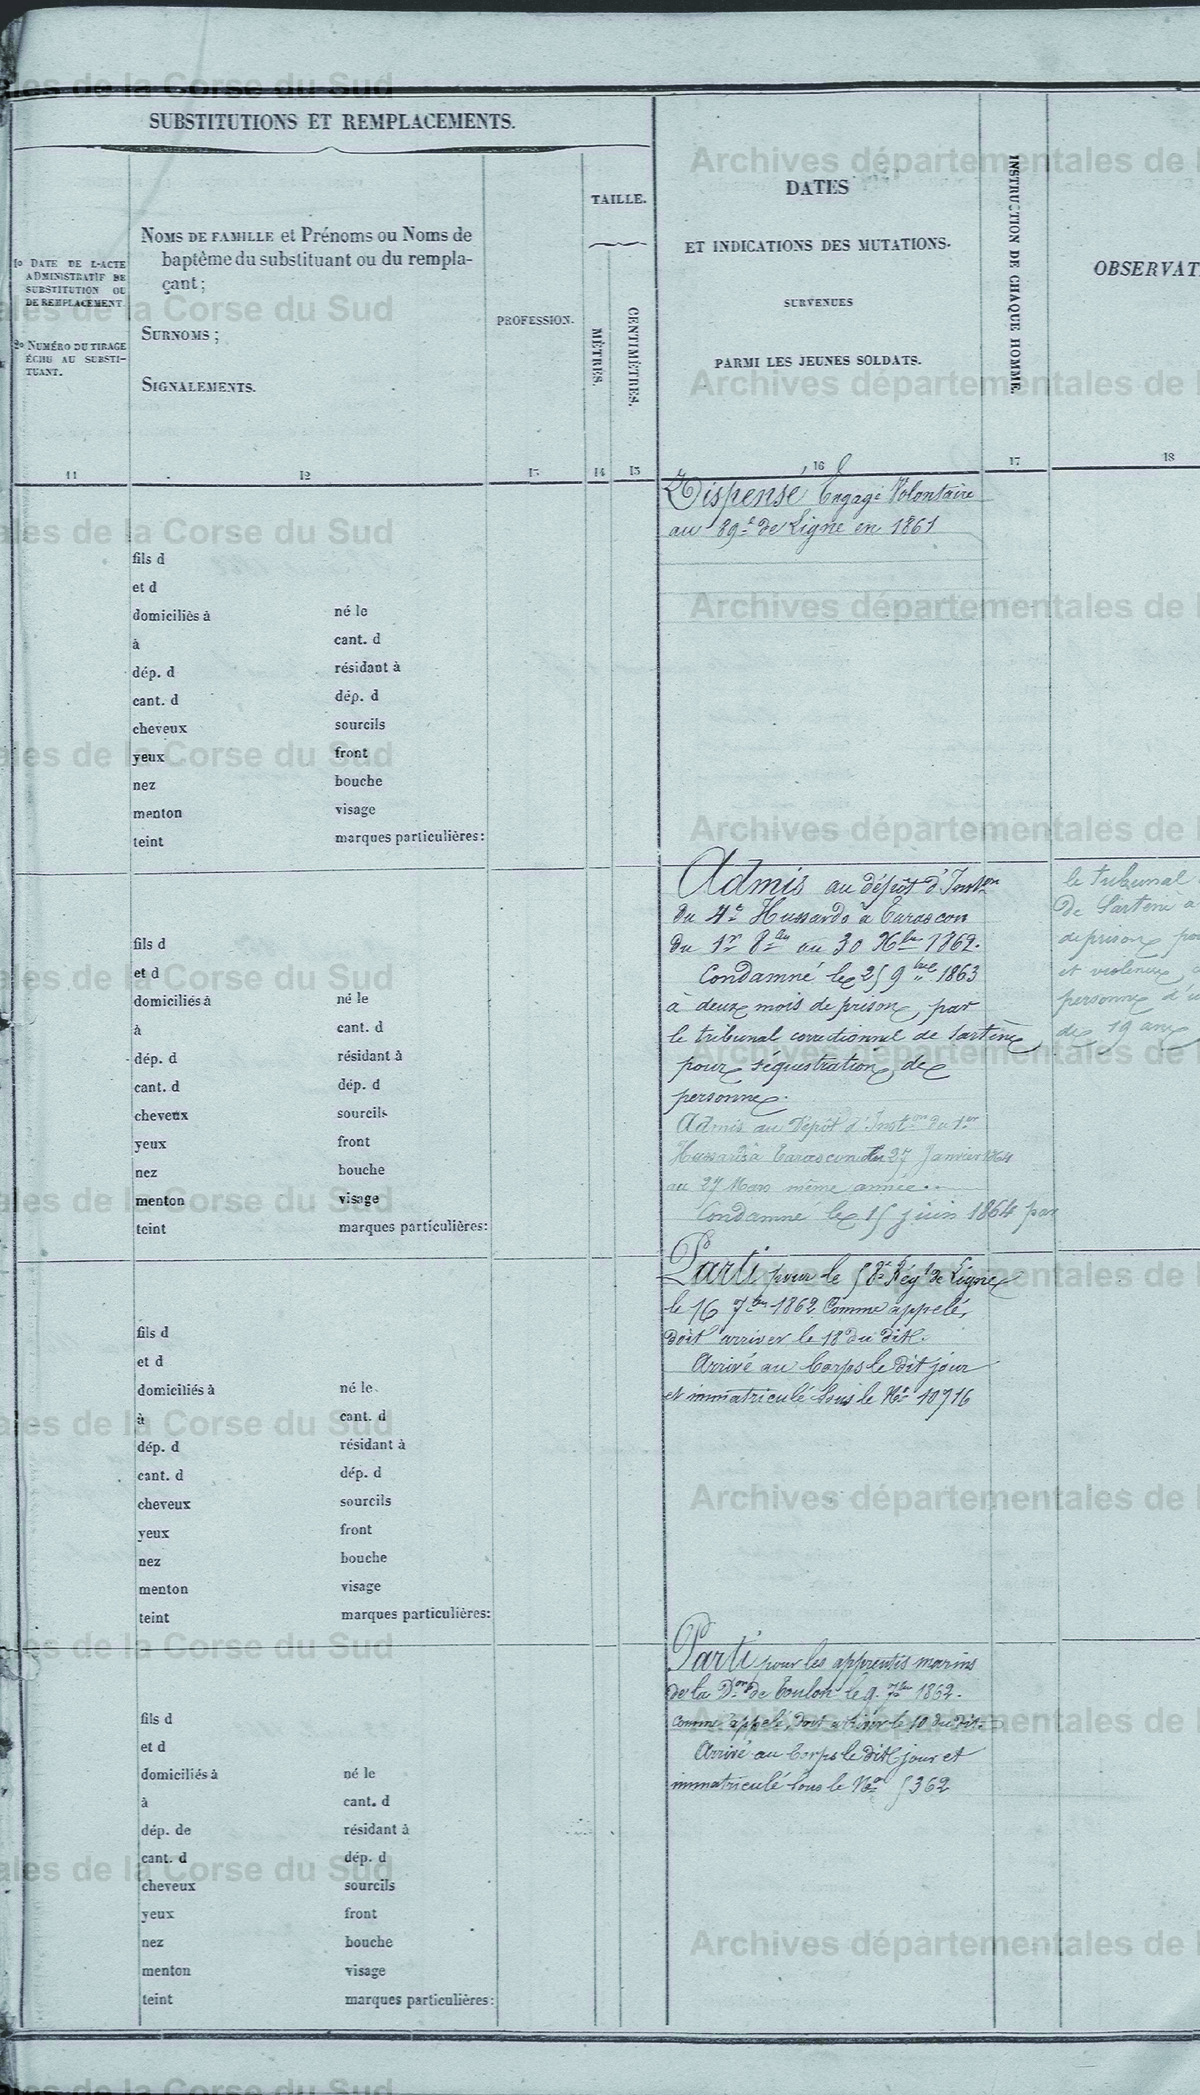 SUBSTITUTIONS ET REMPLACEMENTS.
1o DATE DE L'ACTE
ADMINISTRATIF DE
SUBSTITUTION OU
DE REMPLACEMENT.
2o NUMÉRO DU TIRAGE
ÉCHU AU SUBSTI-
TUANT.
NOMS DE FAMILLE et Prénoms ou Noms de
baptême du substituant ou du rempla-
çant;
SURNOMS;
SIGNALEMENTS.
PROFESSION.
TAILLE.
MÈTRES.
CENTIMÈTRES.
DATES
ET INDICATIONS DES MUTATIONS.
SURVENUES
PARMI LES JEUNES SOLDATS.
INSTRUCTION DE CHAQUE HOMME.
OBSERVAT
11 12 13 14 15 16 17 18
Dispensé Engagé Volontaire
au 89e de Ligne en 1861
fils d
et d
domiciliés à né le
à cant. d
dép. d résidant à
cant. d dép. d
cheveux sourcils
yeux front
nez bouche
menton visage
teint marques particulières:
Admis au dépôt d'Inston
du 4e Hussards à Tarascon
du 1er 8bre au 30 Xbre 1862.
Condamné le 25 9bre 1863
à deux mois de prison, par
le tribunal correctionnel de Sartène
pour séquestration de
personne.
Admis au Dépôt d'Inston du 1er
Hussards à Tarascon du 27 Janvier 1864
au 27 Mars même année.
Condamné le 15 juin 1864 par
le tribunal
de Sartène a
de prison po
et violences
personne d'u
de 19 ans
fils d
et d
domiciliés à né le
à cant. d
dép. d résidant à
cant. d dép. d
cheveux sourcils
yeux front
nez bouche
menton visage
teint marques particulières:
Parti pour le 58e Régt de Ligne
le 16 7bre 1862 Comme appelé,
doit arriver le 18 du dit.
Arrivé au Corps le dit jour
et immatriculé sous le No 10716
fils d
et d
domiciliés à né le
à cant. d
dép. d résidant à
cant. d dép. d
cheveux sourcils
yeux front
nez bouche
menton visage
teint marques particulières:
Parti pour les apprentis marins
de la Don de Toulon le 9. 7bre 1862.
Comme appelé, doit arriver le 10 du dit.
Arrivé au Corps le dit jour et
immatriculé sous le No 5362
fils d
et d
domiciliés à né le
à cant. d
dép. de résidant à
cant. d dép. d
cheveux sourcils
yeux front
nez bouche
menton visage
teint marques particulières: